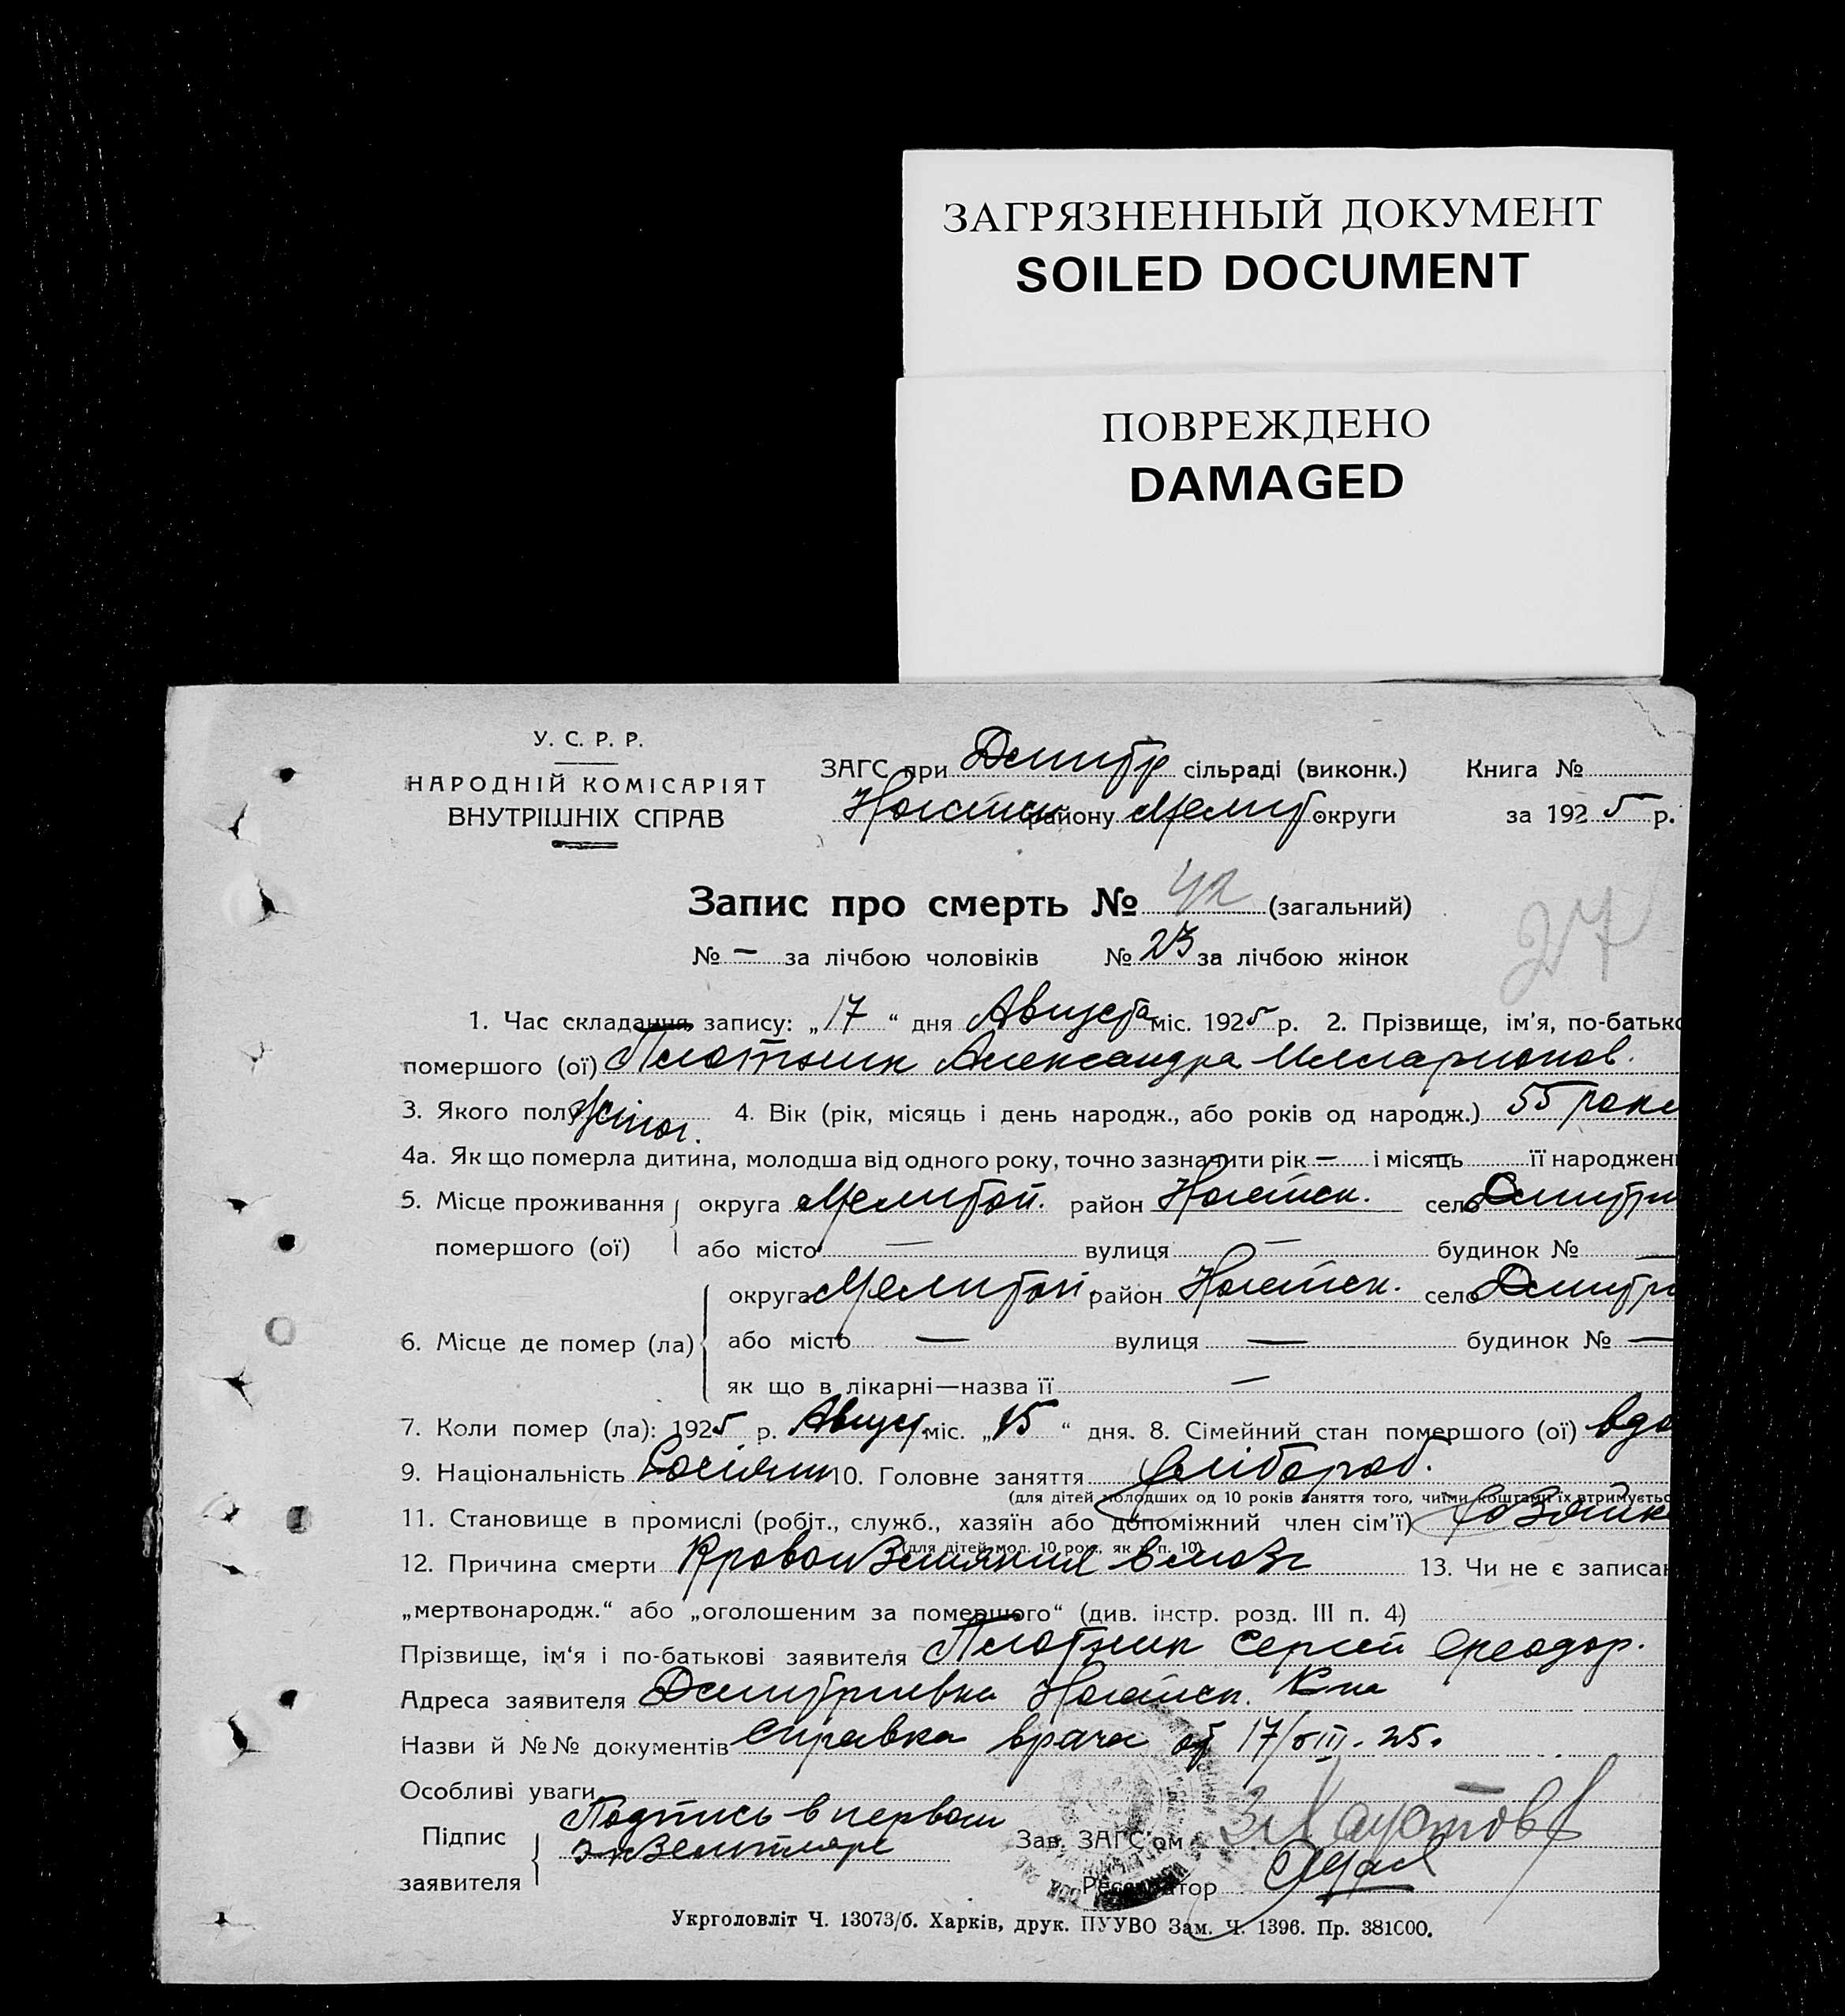 ЗАГРЯЗНЕННЫЙ ДОКУМЕНТ
SOILED DOCUMENT
ПОВРЕЖДЕНО
DAMAGED
У. С. Р. Р.
НАРОДНІЙ КОМІСАРІЯТ
ВНУТРІШНІХ СПРАВ
ЗАГС при Дмитр сільраді (виконк.) Книга №
Ногайськ району Мелит округи за 1925 р.
Запис про смерть № 42 (загальний)
27
№ — за лічбою чоловіків № 23 за лічбою жінок
1. Час складання запису: „17“ дня Августа міс. 1925 р. 2. Прізвище, ім'я, по-батько
помершого (ої) Плотник Александра Илларионов.
3. Якого полу жіноч. 4. Вік (рік, місяць і день народж., або років од народж.) 55 роки
4а. Як що померла дитина, молодша від одного року, точно зазначити рік — і місяць — її народжен
5. Місце проживання округа Мелитоп. район Ногайск. село Дмитри
помершого (ої) або місто — вулиця — будинок № —
округа Мелитоп. район Ногайск. село Дмитри
6. Місце де помер (ла) або місто — вулиця — будинок № —
як що в лікарні—назва її —
7. Коли помер (ла): 1925 р. Август міс. „15“ дня. 8. Сімейний стан помершого (ої) вдо
9. Національність 10. Головне заняття хлібороб.
(для дітей молодших од 10 років заняття того, чиїми коштами їх втримуєтьс
11. Становище в промислі (робіт., служб., хазяїн або допоміжний член сім'ї) хозяйк
(для дітей мол. 10 рок., як в п. 10)
12. Причина смерти Кровоизлияния в мозг 13. Чи не є записан
„мертвонародж.“ або „оголошеним за помершого“ (див. інстр. розд. III п. 4)
Прізвище, ім'я і по-батькові заявителя Плотник Сергей Феодор.
Адреса заявителя Дмитриевка Ногайск. Р-на
Назви й №№ документів справка врача от 17/VIII. 25.
Особливі уваги
Підпис заявителя Подпись в первом экземпляре
Зав. ЗАГС'ом
Реєстратор
Укрголовліт Ч. 13073/б. Харків, друк. ПУУВО Зам. Ч. 1396. Пр. 381000.